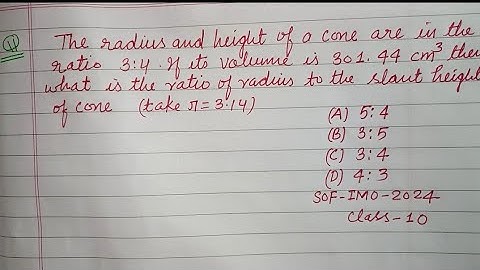 Q The radius and height of a cone are in the
ratio 3:4. If its volume is 301.44 cm³ then
what is the ratio of radius to the slant height
of cone (take π = 3.14)
(A) 5:4
(B) 3:5
(C) 3:4
(D) 4:3
SOF-IMO-2024
Class-10